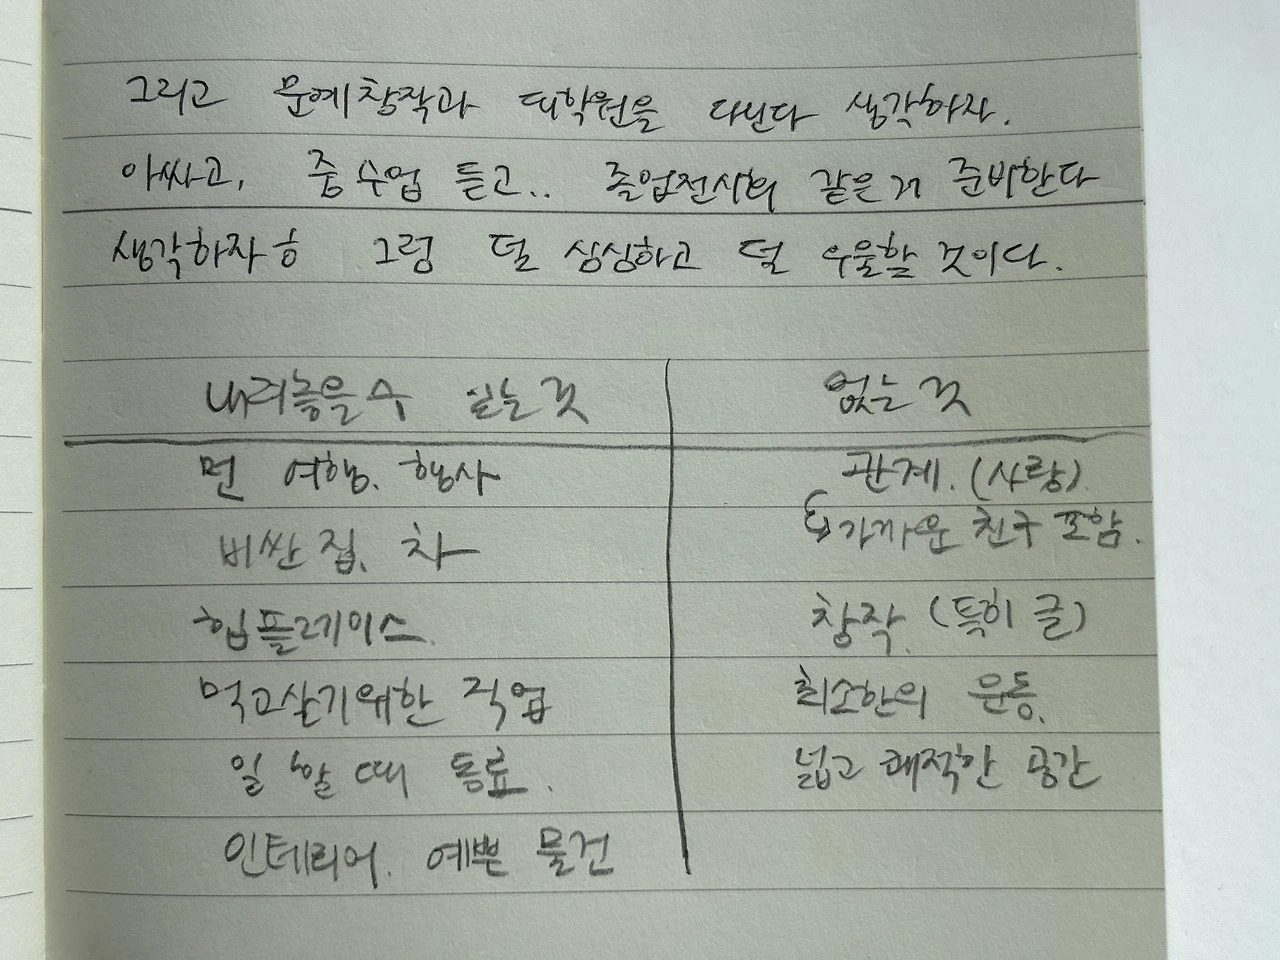 그리고 문예창작과 대학원을 다닌다 생각하자.
아싸고, 줌수업 듣고.. 졸업전시회 같은거 준비한다
생각하자ㅎ 그럼 덜 싱싱하고 덜 우울할 것이다.
내려놓을 수 있는 것 없는 것
먼 여행. 행사 관계. (사랑)
가까운 친구 포함.
비싼 집. 차
힙플레이스. 창작. (특히 글)
먹고살기위한 직업 최소한의 운동.
일 할 때 동료. 넓고 쾌적한 공간
인테리어. 예쁜 물건